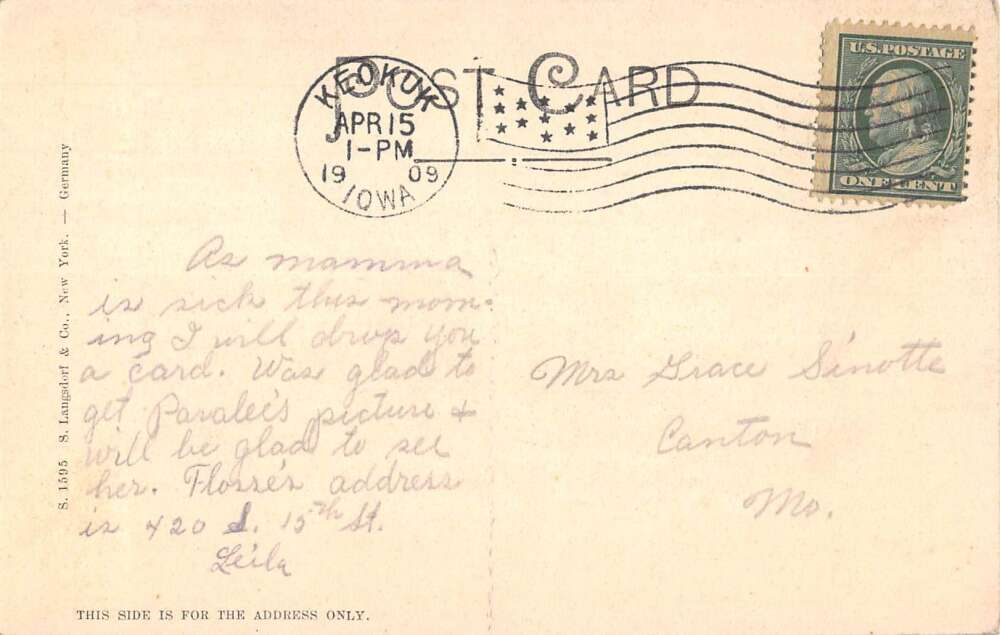 POST CARD
KEOKUK
APR 15
1-PM
19 09
IOWA
U.S. POSTAGE
ONE CENT
S. 1595 S. Langsdorf & Co., New York. — Germany
As mamma
is sick this morn-
ing I will drop you
a card. Was glad to
get Paralee's picture &
will be glad to see
her. Flossie's address
is 420 S. 15th St.
Leila
Mrs Grace Sinotte
Canton
Mo.
THIS SIDE IS FOR THE ADDRESS ONLY.